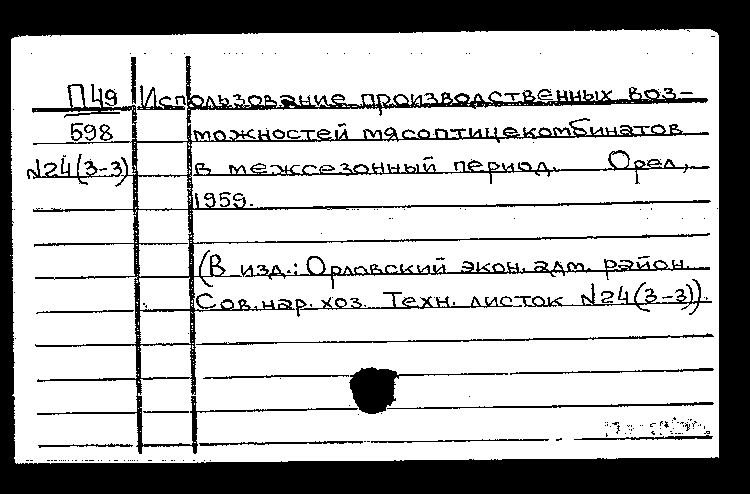 П49 Использование производственных воз-
598 можностей мясоптицекомбинатов
№24(3-3) в межсезонный период. Орел,
1959.
(В изд.: Орловский экон. адм. район.
Сов. нар. хоз. Техн. листок №24(3-3)).